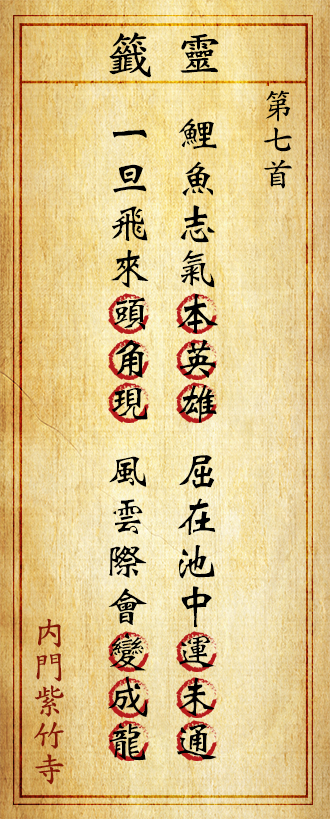 靈籤
第七首
鯉魚志氣本英雄 屈在池中運未通
一旦飛來頭角現 風雲際會變成龍
內門紫竹寺